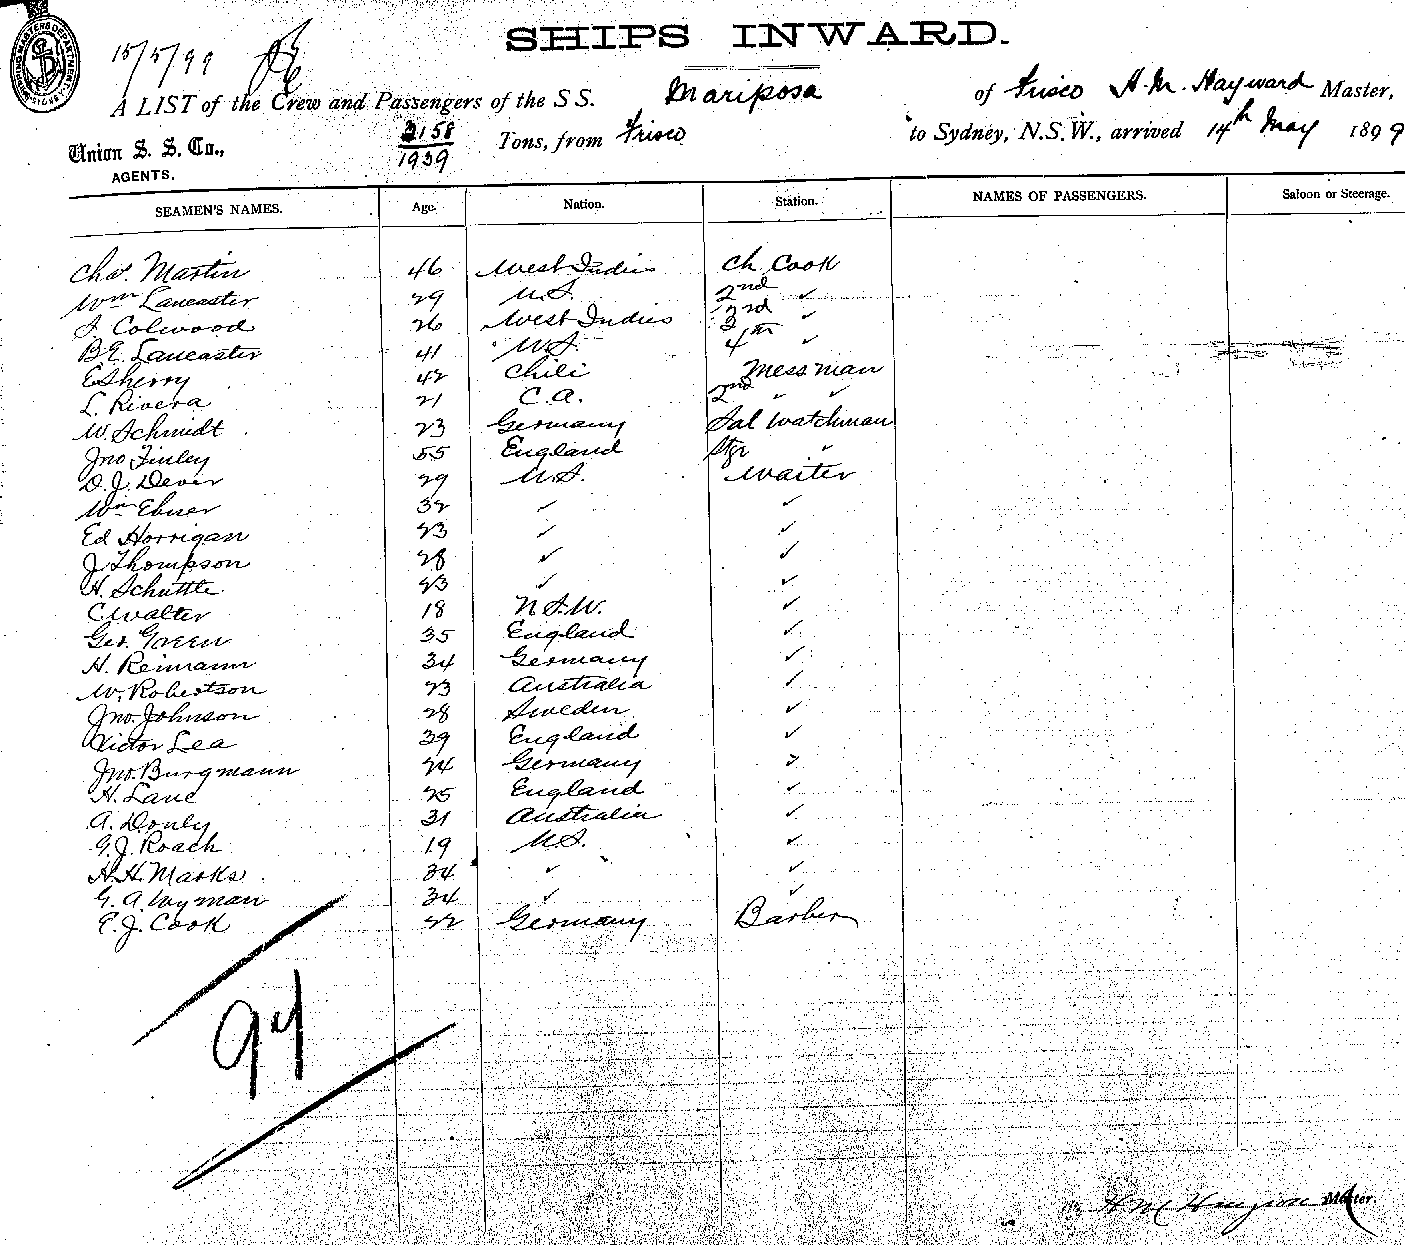 SHIPS INWARD.
15/5/99
A LIST of the Crew and Passengers of the S S. Mariposa of Frisco H. M. Hayward Master,
Union S. S. Co., AGENTS. 3158 / 1939 Tons, from Frisco to Sydney, N.S.W., arrived 14th May 1899
SEAMEN'S NAMES. Age. Nation. Station. NAMES OF PASSENGERS. Saloon or Steerage.
Chas. Martin 46 West Indies Ch Cook
Wm Lancaster 29 U.S. 2nd ✓
J. Colwood 26 West Indies 3rd ✓
B.E. Lancaster 41 U.S. 4th ✓
E Sherry 42 Chili Messman
L. Rivera 21 C.A. 2nd " ✓
W. Schmidt 23 Germany Sal Watchman
Jno Finley 55 England Stge "
D. J. Dever 29 U.S. Waiter
Wm Ebner 32 ✓ ✓
Ed Horrigan 23 ✓ ✓
J Thompson 28 ✓ ✓
H. Schuttle 23 ✓ ✓
C Walter 18 N.S.W. ✓
Geo. Green 35 England ✓
H. Reimann 34 Germany ✓
W. Robertson 23 Australia ✓
Jno. Johnson 28 Sweden ✓
Victor Lea 39 England ✓
Jno. Burgmann 24 Germany ✓
H. Lane 25 England ✓
A. Donly 31 Australia ✓
G. J. Roach 19 U.S. ✓
H. H. Marks 34 ✓ ✓
G. A. Wyman 34 ✓ ✓
E. J. Cook 22 Germany Barber
94
Master.